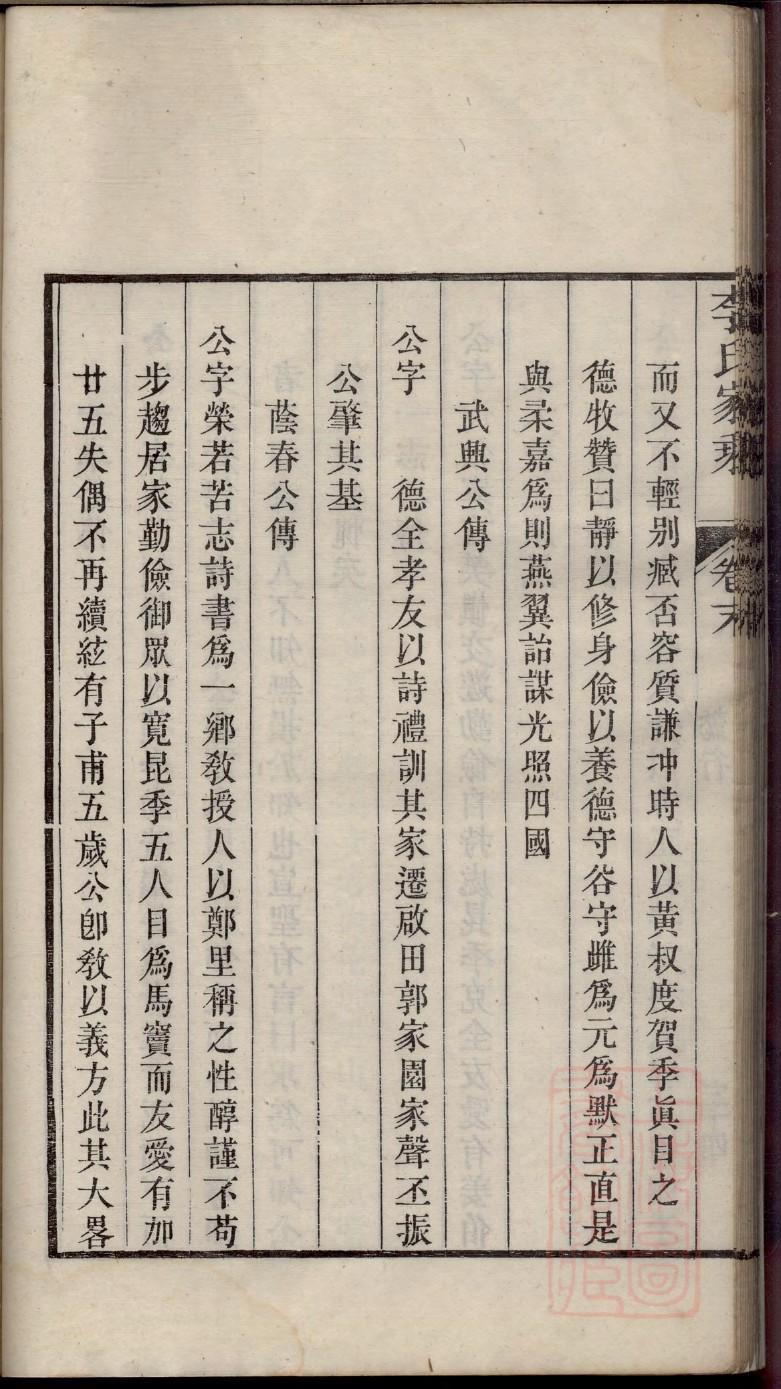 李氏家乘 卷末
而又不輕别臧否容質謙冲時人以黃叔度賀季眞目之
德牧贊曰靜以修身儉以養德守谷守雌爲元爲默正直是
與柔嘉爲則燕翼詒謀光照四國
武興公傳
公字 德全孝友以詩禮訓其家遷啟田郭家園家聲丕振
公肇其基
蔭春公傳
公字榮若苦志詩書爲一鄉敎授人以鄭里稱之性醇謹不苟
步趨居家勤儉御眾以寬昆季五人目爲馬竇而友愛有加
廿五失偶不再續絃有子甫五歲公卽敎以義方此其大畧